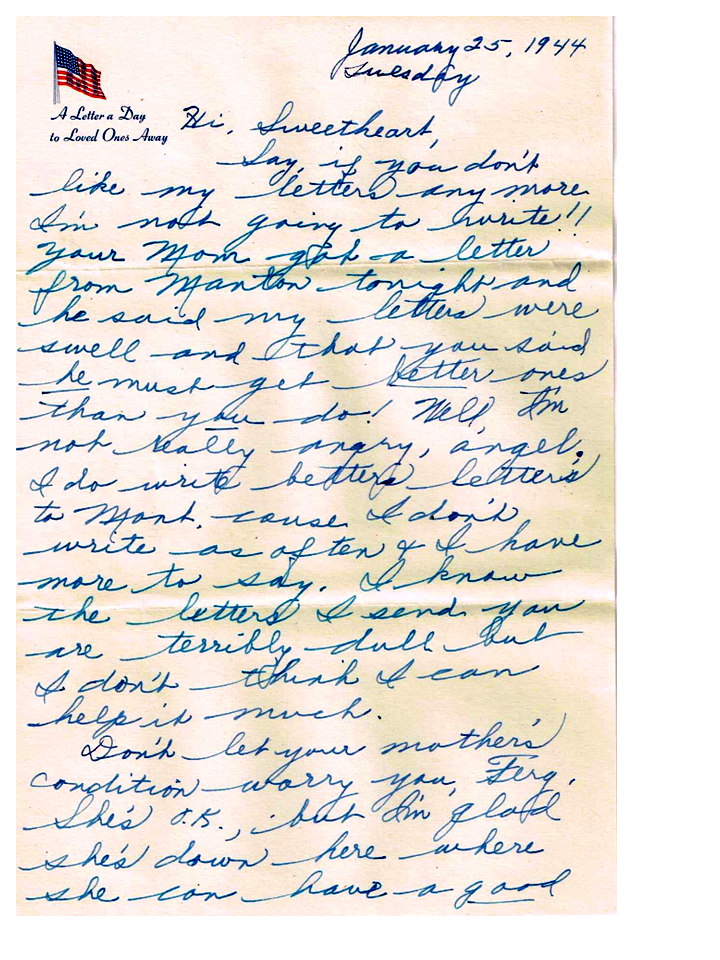 January 25, 1944
Tuesday
A Letter a Day
to Loved Ones Away
Hi, Sweetheart,
Say if you don't
like my letters any more
I'm not going to write!!
Your Mom got a letter
from Manton tonight and
he said my letters were
swell and that you said
he must get better ones
than you do! Well, I'm
not really angry, angel.
I do write better letters
to Mant. cause I don't
write as often & I have
more to say. I know
the letters I send you
are terribly dull but
I don't think I can
help it much.
Don't let your mother's
condition worry you, Ferg.
She's O.K., but I'm glad
she's down here where
she can have a good